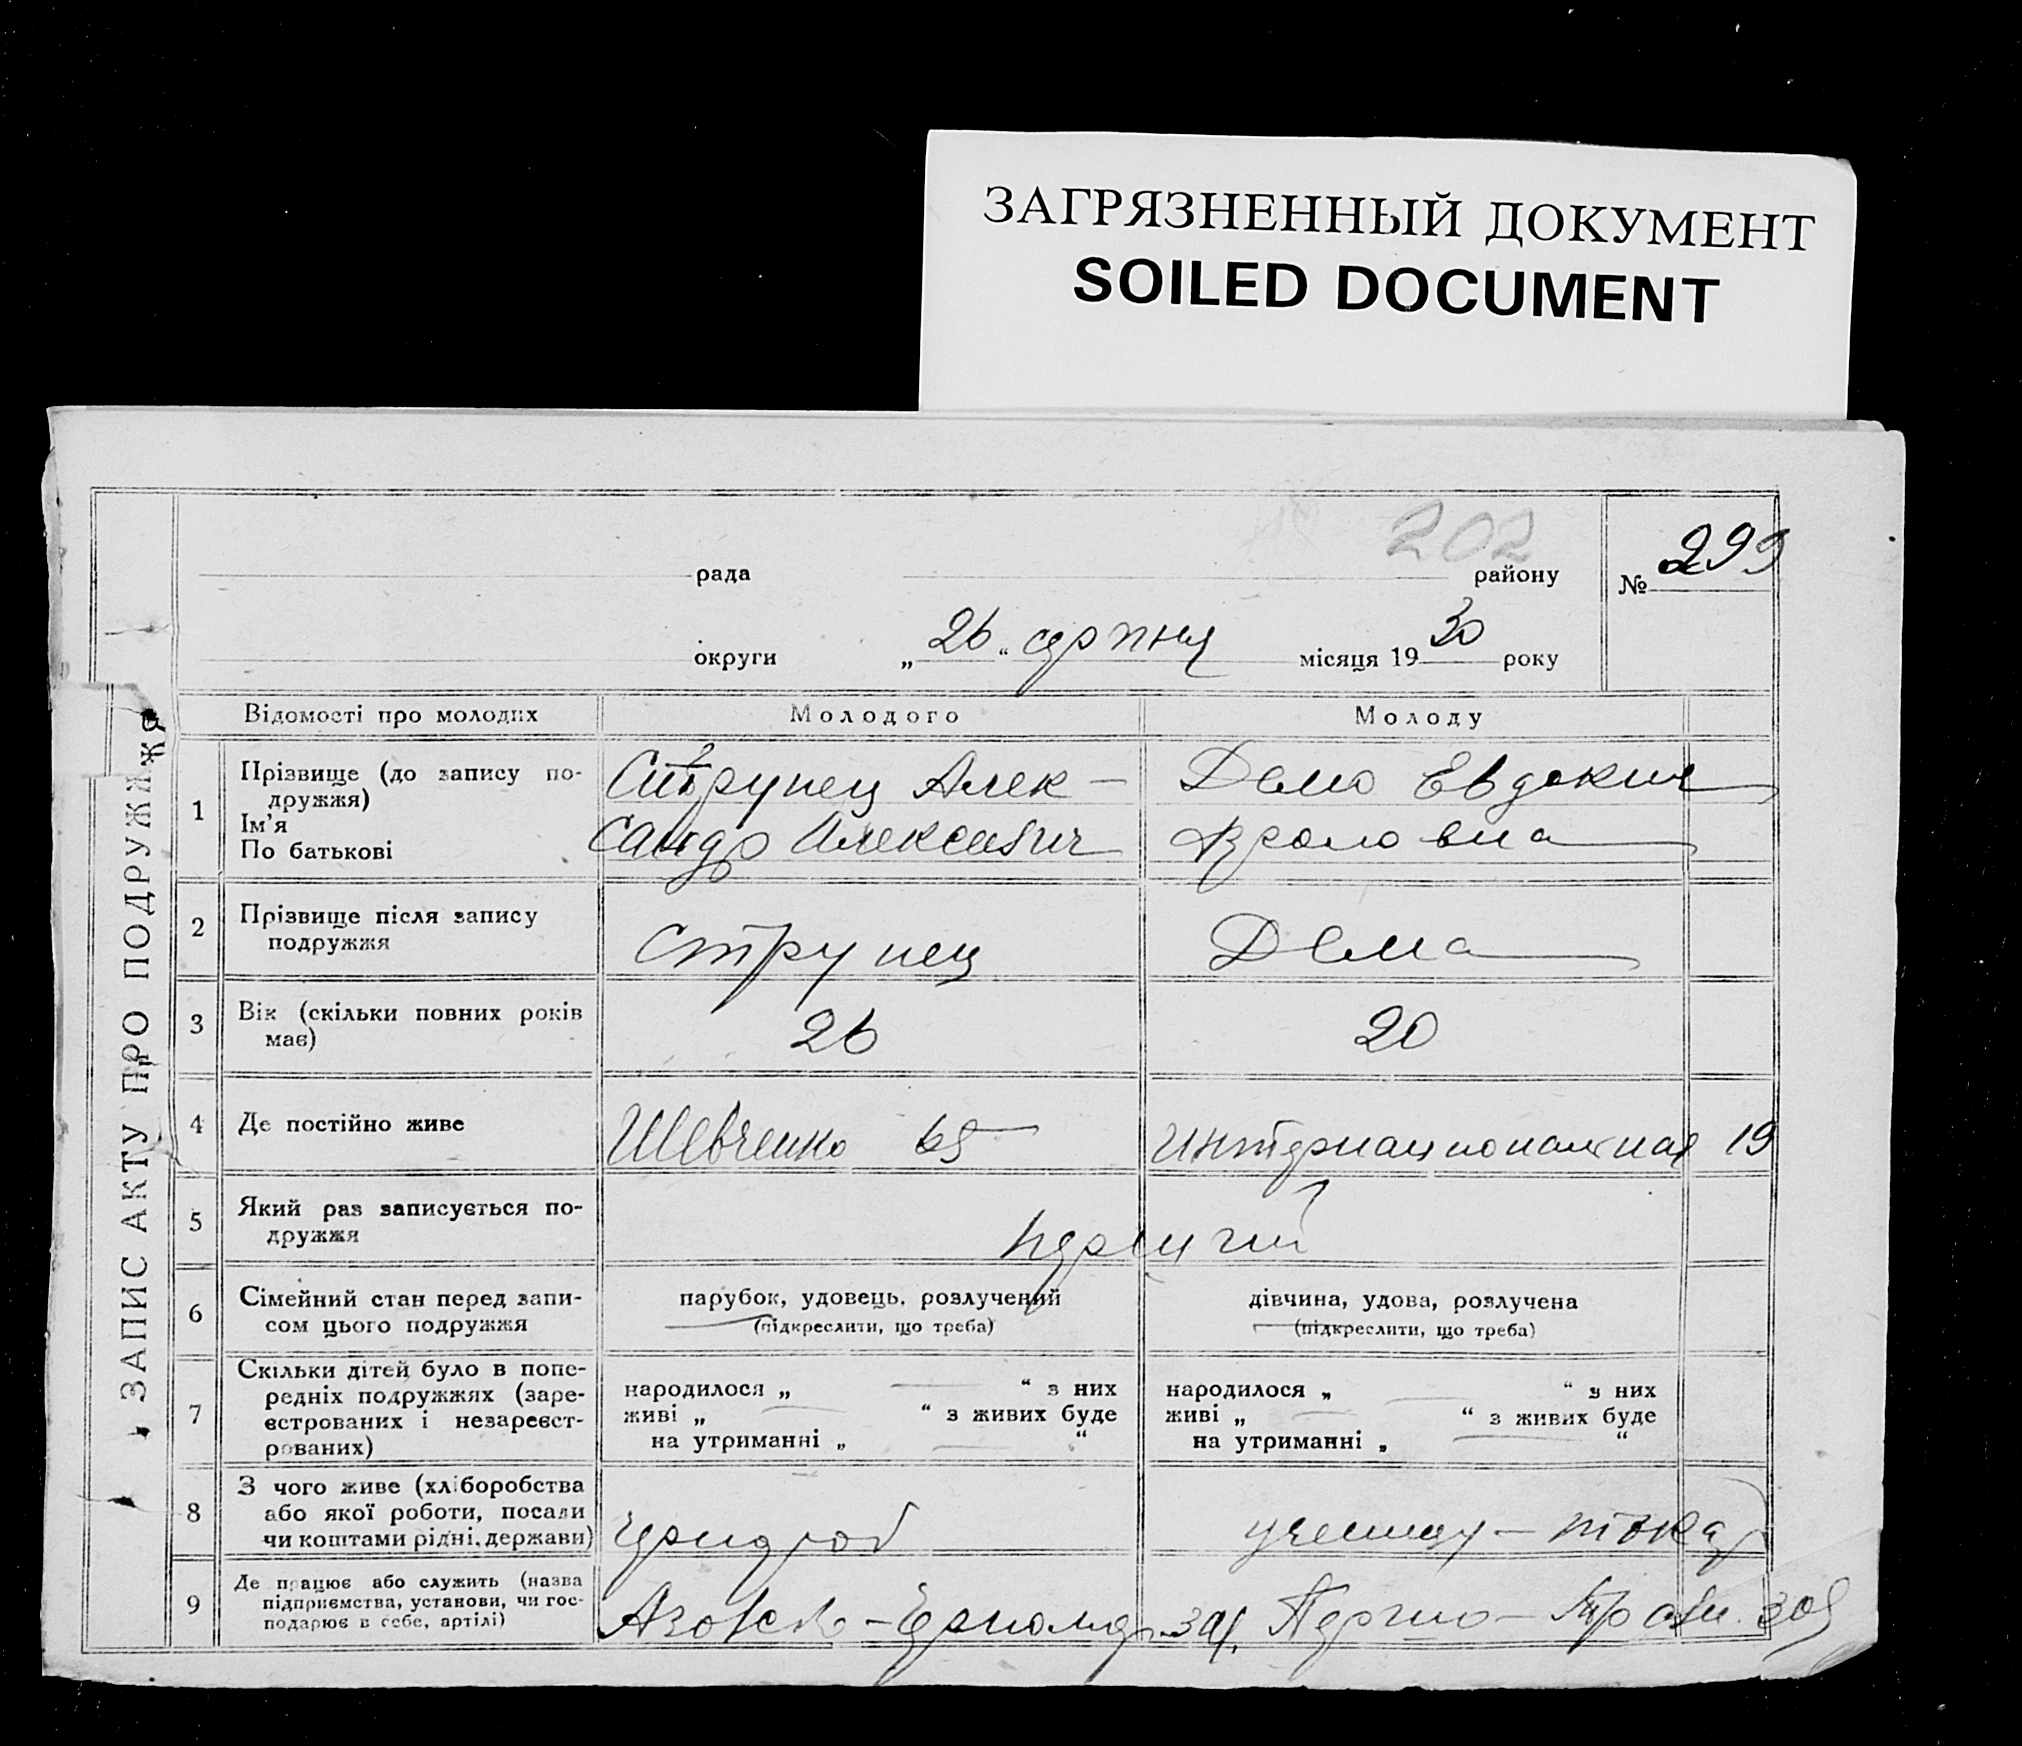 ЗАГРЯЗНЕННЫЙ ДОКУМЕНТ
SOILED DOCUMENT
202
рада района районy № 299
округи „ 26 “ серпня місяця 19 30 року
ЗАПИС АКТУ ПРО ПОДРУЖЖЯ
Відомості про молодих Молодого Молоду
1 Прізвище (до запису по-
дружжя)
Ім’я
По батькові
Струнец Алек-
сандр Алексевич
Демо Евдокия
2 Прізвище після запису
подружжя
Струнец Дема
3 Вік (скільки повних років
має)
26 20
4 Де постійно живе Шевченко 65 Интернациональная 19
5 Який раз записується по-
дружжя
перший
6 Сімейний стан перед запи-
сом цього подружжя
парубок, удовець, розлучений
(підкреслити, що треба)
дівчина, удова, розлучена
(підкреслити, що треба)
7 Скільки дітей було в попе-
редніх подружжях (заре-
єстрованих і незареєст-
рованих)
народилося „ — “ з них
живі „ — “ з живих буде
на утриманні „ — “
народилося „ — “ з них
живі „ — “ з живих буде
на утриманні „ — “
8 З чого живе (хліборобства
або якої роботи, посади
чи коштами рідні, держави)
чернороб
9 Де працює або служить (назва
підприємства, установи, чи гос-
подарює в себе, артілі)